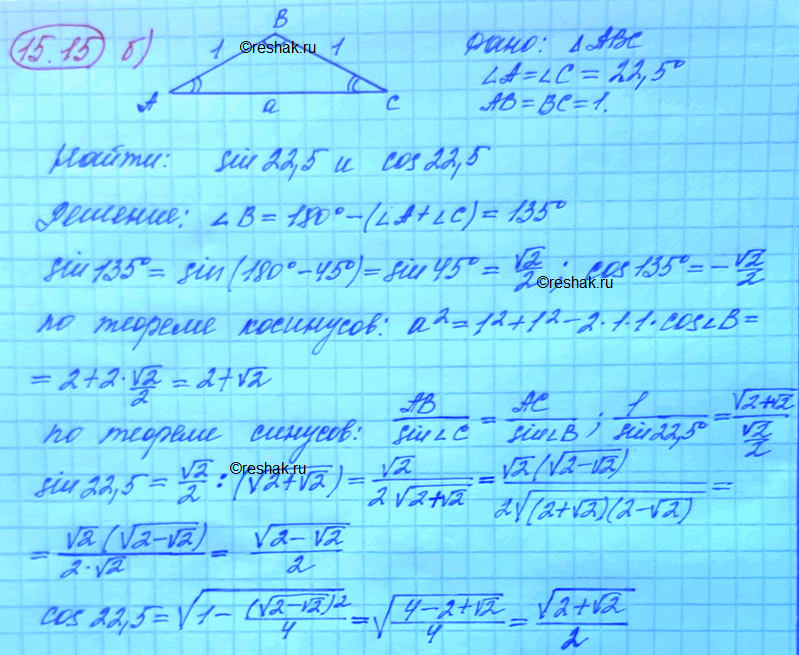 15.15 б)
B
1 ©reshak.ru 1
A a C
Дано: △ABC
∠A=∠C=22,5°
AB=BC=1.
Найти: sin 22,5 и cos 22,5
Решение: ∠B=180°-(∠A+∠C)=135°
sin 135°= sin(180°-45°)=sin 45°=√2/2; cos 135°=-√2/2
©reshak.ru
по теореме косинусов: a²=1²+1²-2·1·1·cos∠B=
=2+2·√2/2=2+√2
по теореме синусов: AB/sin∠C = AC/sin∠B; 1/sin 22,5° = √(2+√2)/(√2/2)
©reshak.ru
sin 22,5=√2/2:(√(2+√2))=√2/(2√(2+√2))=√2(√(2-√2))/(2√((2+√2)(2-√2)))=
=√2(√(2-√2))/(2·√2)=√(2-√2)/2
cos 22,5=√(1-(√(2-√2))²/4)=√((4-2+√2)/4)=√(2+√2)/2